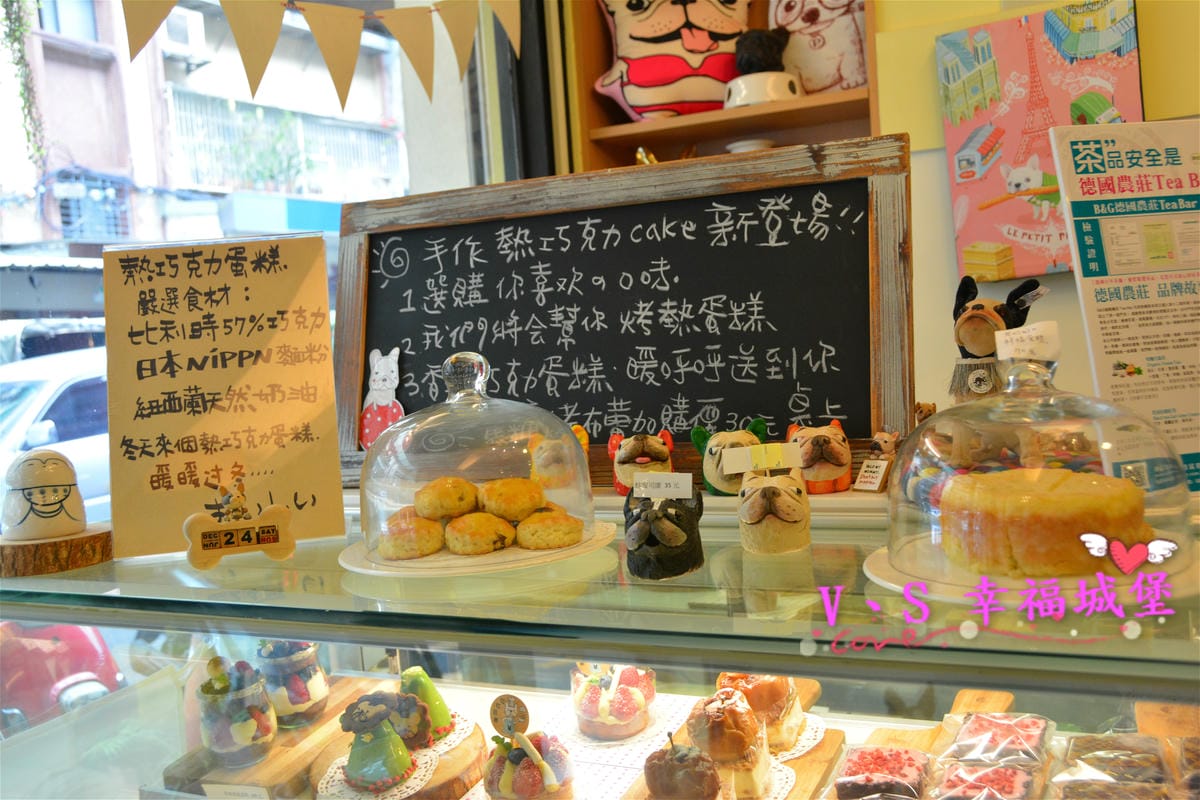 熱巧克力蛋糕.
嚴選食材：
比利時57%巧克力
日本NiPPN麵粉
紐西蘭天然奶油
冬天來個熱巧克力蛋糕.
暖暖过冬....
DEC 24 SAT
手作 熱巧克力cake 新登場!!
1.選購你喜欢の口味.
2.我們將会幫你烤熱蛋糕
巧克力蛋糕.暖呼呼送到你
加購價30元 桌上
35元
LE PETIT
茶品安全是
德國農莊Tea B
B&G德國農莊TeaBar
檢驗證明
德國農莊 品牌故
V、S 幸福城堡
Love